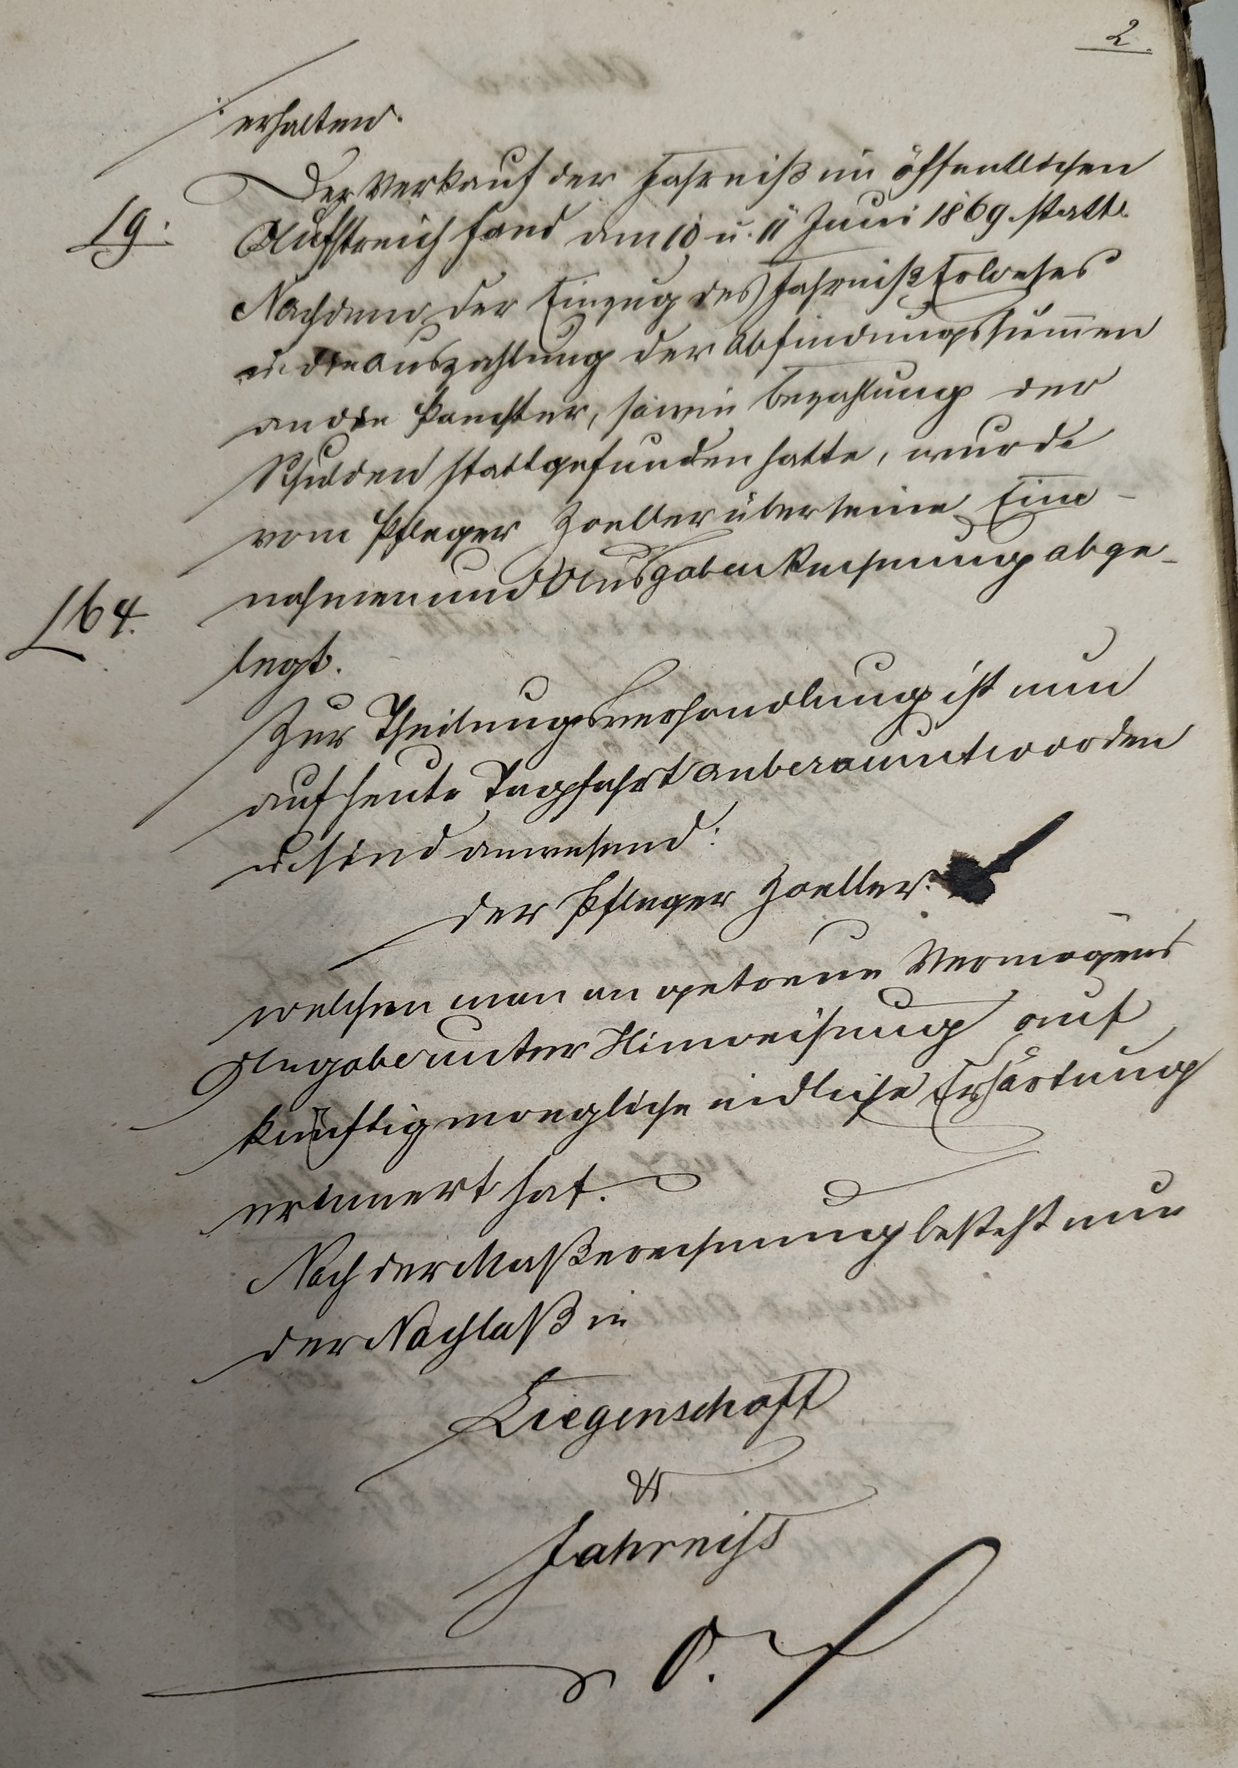 2.
erhalten.
Der Verkauf der Fahrniß im öffentlichen
19.
Aufstreich fand am 10 u. 11 Juni 1869. statt.
Nachdem der Einzug des Fahrniß Erlöses
u. die Auszahlung der Abfindungssummen
an die Paechter, sowie Bezahlung der
Schulden stattgefunden hatte, wurde
vom Pfleger Zoeller über seine Ein-
nahmen und Ausgaben Rechnung abge-
164.
legt.
Zur Theilungsverhandlung ist nun
auf heute Tagfahrt anberaumt worden
u. sind anwesend:
der Pfleger Zoeller.
welchen man an getreue Vermögens
Angabe unter Hinweisung auf
künftig moegliche eidliche Erhärtung
erinnert hat.
Nach der Masserechnung besteht nun
der Nachlaß in
Liegenschaft
&
Fahrniss